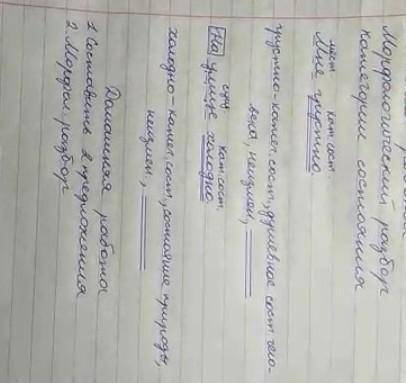 Морфологический разбор
категории состояния
мест. кат. сост.
Мне грустно.
грустно - катег. сост., душевное сост. чело-
века, неизмен.,
сущ. кат. сост.
На улице холодно.
холодно - катег. сост., состояние природы,
неизмен.,
Домашняя работа
1. Составить 2 предложения
2. Морфол. разбор